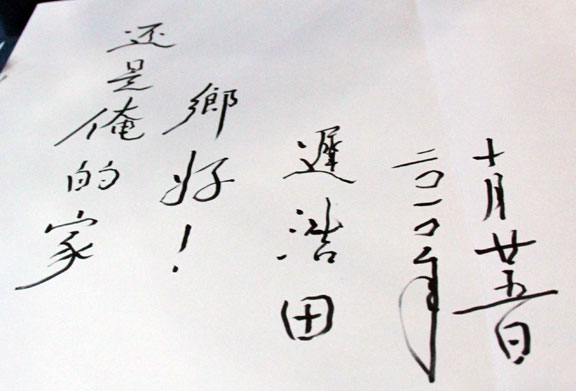 还是俺的家
鄉好！
遲浩田
二〇一〇年
十月廿五日